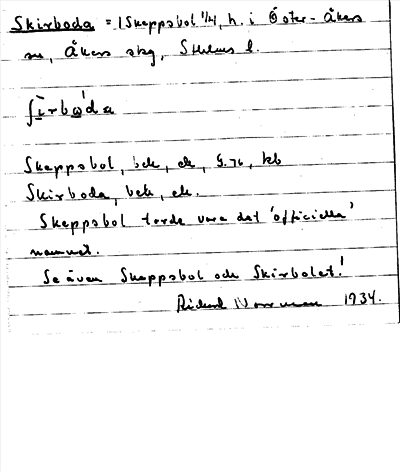 Skirboda = (Skeppsbol 1/4, h. i Öster-Åkers
sn, Åkers skg, Sthlms l.
ʃi̱rbω̱'da
Skeppsbol, bek, ek, G.76, kb
Skirboda, bek, ek.
Skeppsbol torde vara det 'officiella'
namnet.
Se även Skeppsbol och Skirbolet!
Rickard 1934.